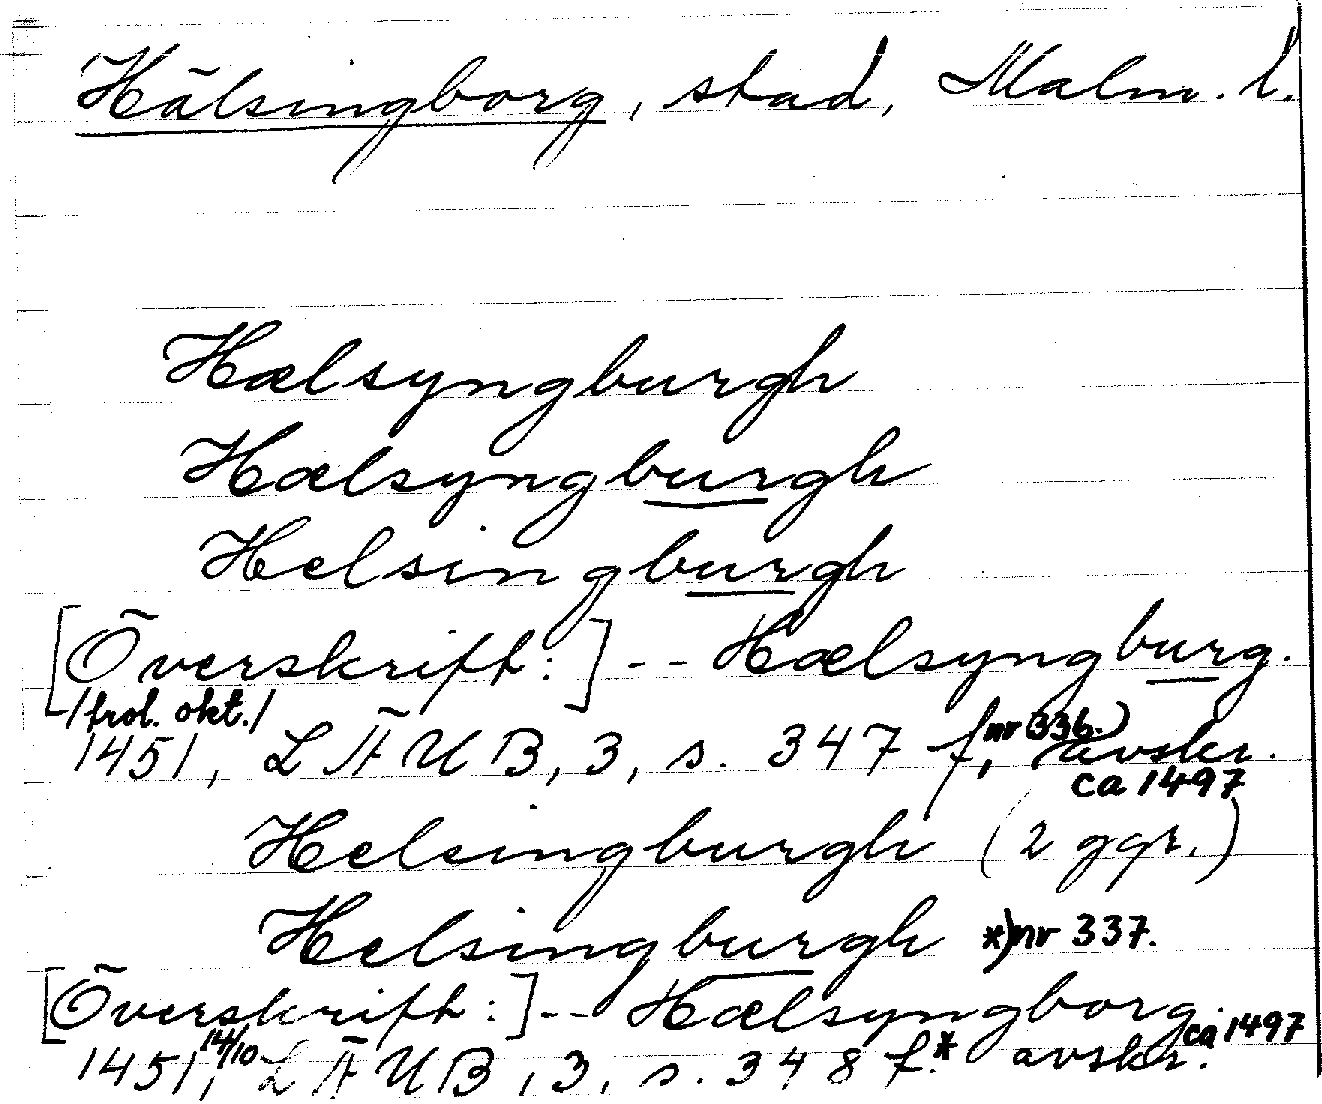 Hälsingborg, stad, Malm. l.
Hælsyngburgh
Hælsyngburgh
Helsingburgh
[Överskrift:] -- Hælsyngburg.
/frol. okt./
1451, LÄUB, 3, s. 347 f, (nr 336.) avskr.
ca 1497
Helsingburgh (2 ggr.)
Helsingburgh *) nr 337.
[Överskrift:] -- Hælsyngborg.
1451, 14/10 LÄUB, 3, s. 348 f.* avskr. ca 1497